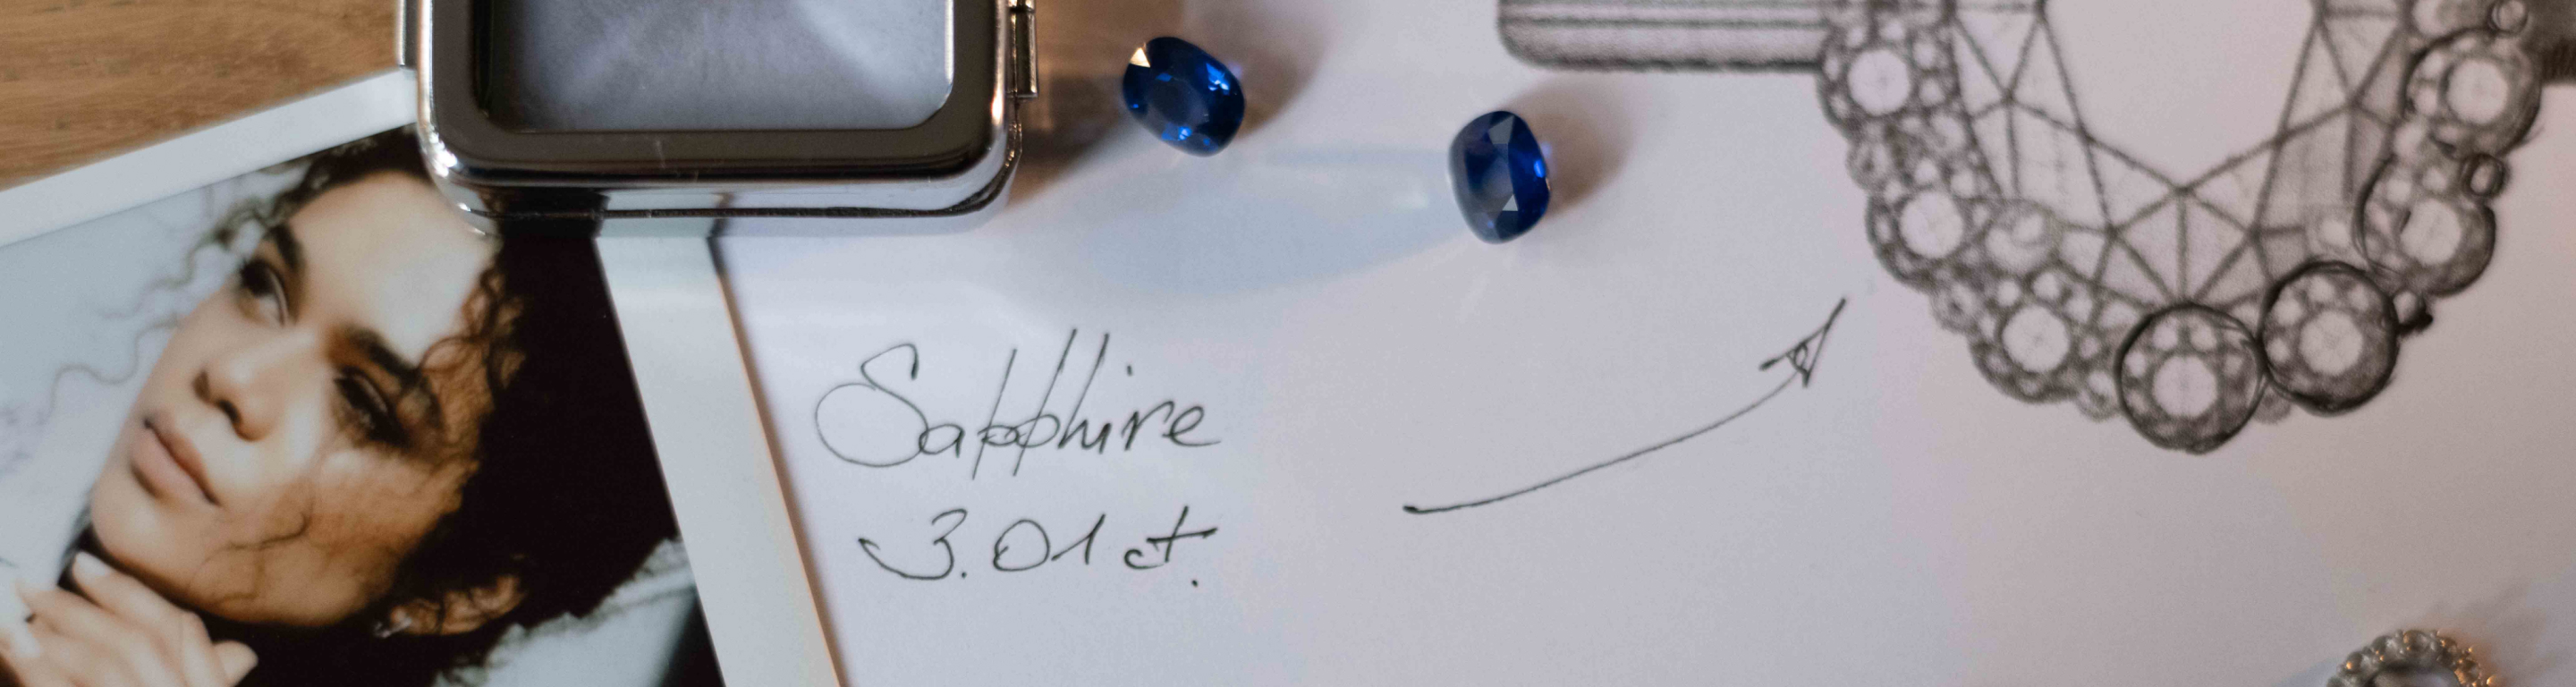 Sapphire
3.01 ct.